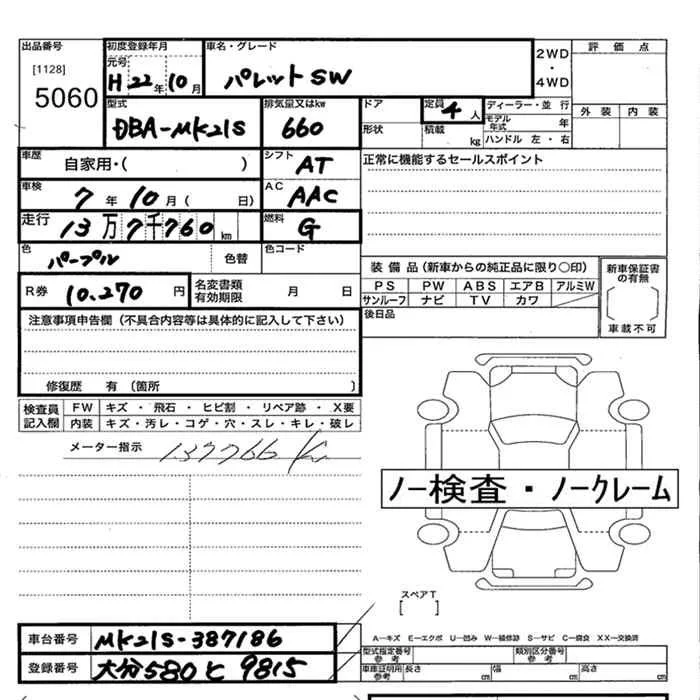 出品番号 [1128] 5060
初度登録年月 元号 H22年10月
車名・グレード パレットSW
2WD・4WD
評価点
外装 内装
型式 DBA-MK21S
排気量又はkw 660
ドア 形状
定員 4人
積載 kg
ディーラー・並行
モデル年式 年
ハンドル 左・右
車歴 自家用・( )
シフト AT
正常に機能するセールスポイント
車検 7年10月( 日)
AC AAC
走行 13万7千760km
燃料 G
色 パープル 色替
色コード
装備品(新車からの純正品に限り○印)
PS PW ABS エアB アルミW
サンルーフ ナビ TV カワ
新車保証書の有無
[ ]
車載不可
R券 10.270円
名変書類有効期限 月 日
後日品
注意事項申告欄(不具合内容等は具体的に記入して下さい)
修復歴 有 (箇所 )
検査員記入欄
FW キズ・飛石・ヒビ割・リペア跡・X要
内装 キズ・汚レ・コゲ・穴・スレ・キレ・破レ
メーター指示 137766 Km
ノー検査・ノークレーム
スペアT
[ ]
A―キズ E―エクボ U―凹み W―補修跡 S―サビ C―腐食 XX―交換済
車台番号 MK21S-387186
型式指定番号 参考
類別区分番号 参考
登録番号 大分580 と 9815
車庫証明用参考 長さ cm 幅 cm 高さ cm